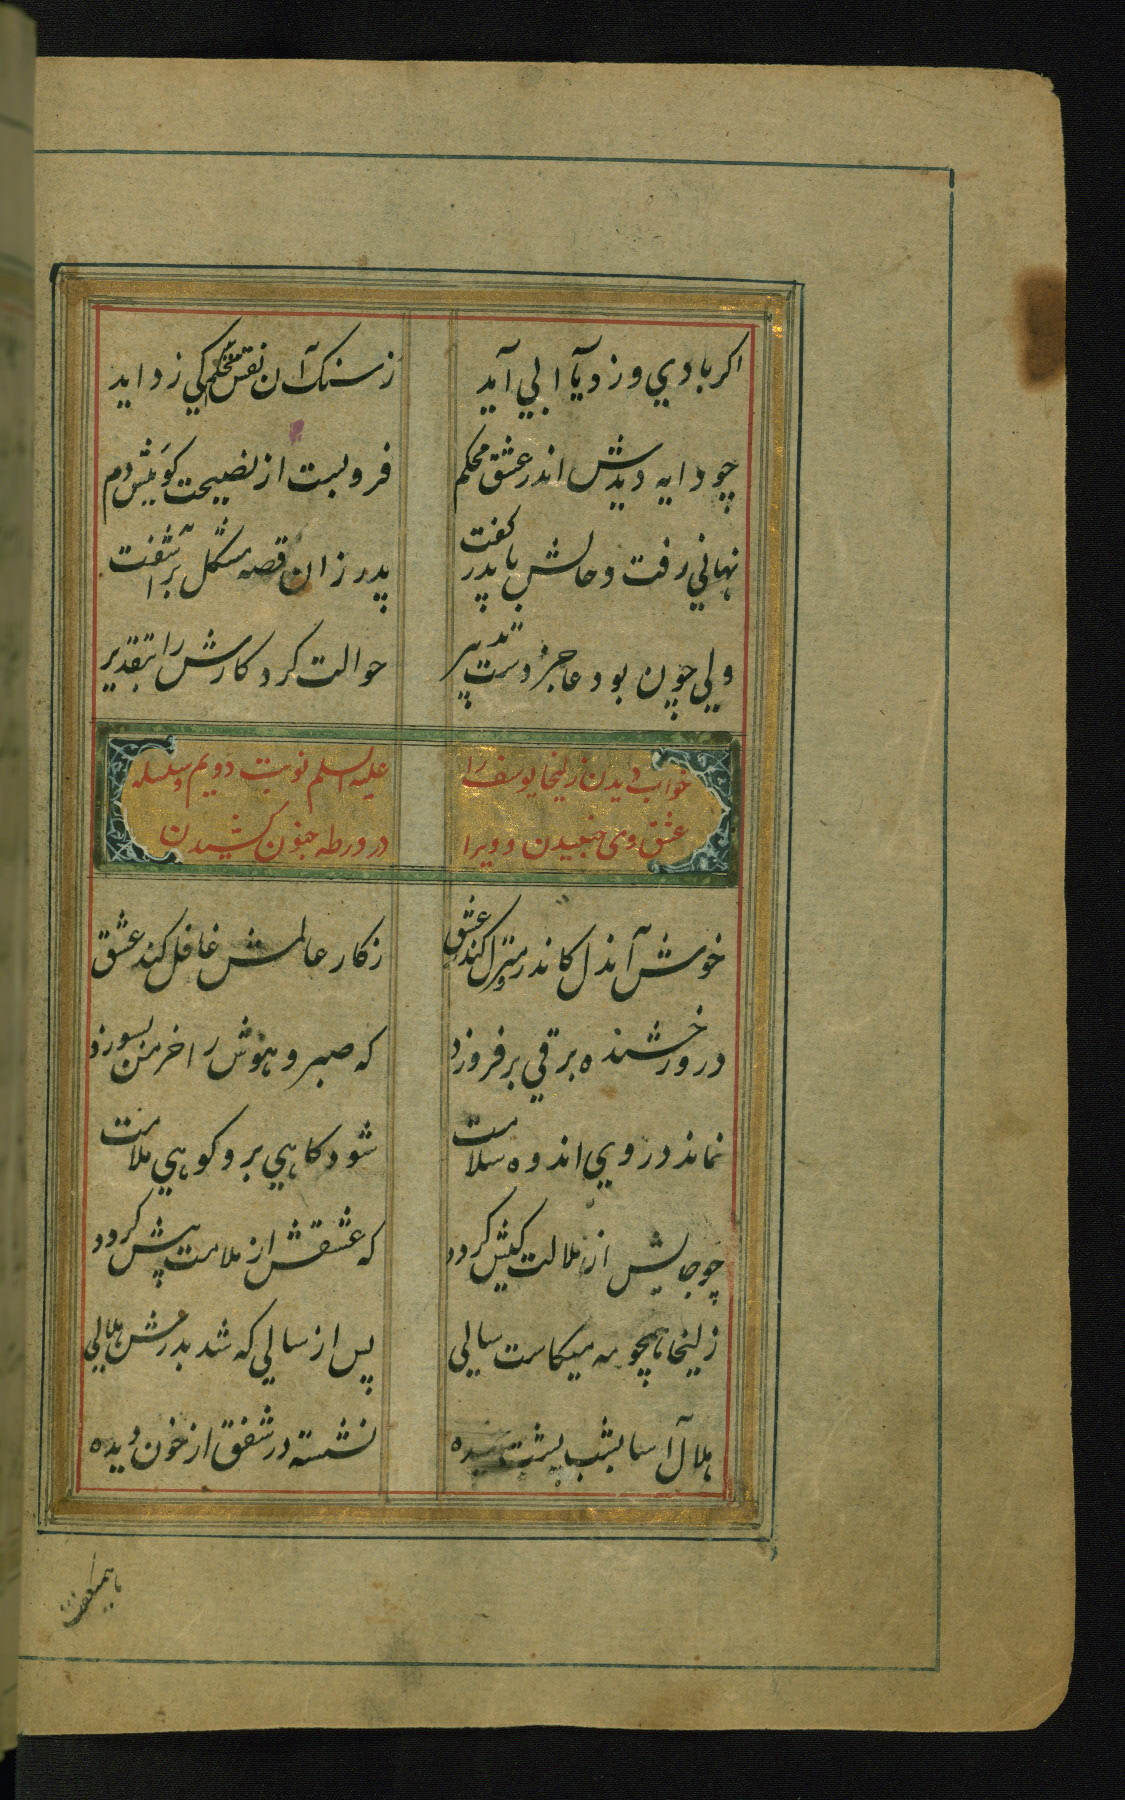 اگر بادي وزد يا آبي آيد	ز سنگ آن نقش محکم کي زدايد
چو دايه ديدش اندر عشق محکم	فرو بست از نصيحت گويیش دم
نهاني رفت و حالش با پدر گفت	پدر زان قصه مشکل بر آشفت
ولي چون بود عاجز دست تدبير	حوالت کرد کارش را بتقدير
خواب ديدن زليخا يوسف را	عليه السلم نوبت دويم و سلسله
عشق وی جنبيدن و ويرا	در ورطه جنون کشيدن
خوش آندل کاندرو منزل کند عشق	ز کار عالمش غافل کند عشق
درو رخشنده برقي بر فروزد	که صبر و هوش را خرمن بسوزد
نماند در وي اندوه سلامت	شود کاهي برو کوهي ملامت
چو جانش از ملالت کيش گردد	که عشقش از ملامت بيش گردد
زليخا همچو مه ميکاست سالي	پس از سالي که شد بدرش هلالي
هلال آسا بشب پشت خميده	نشسته در شفق از خون ديده